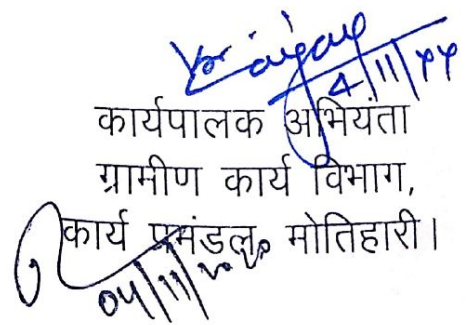 4/11/44
कार्यपालक अभियंता
ग्रामीण कार्य विभाग,
कार्य प्रमंडल, मोतिहारी।
04/11/2020